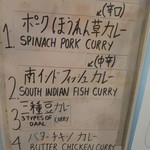 (辛口)
1. ポークほうれん草カレー
SPINACH PORK CURRY
(中辛)
2. 南インドフィッシュカレー
SOUTH INDIAN FISH CURRY
3 三種豆カレー
3 TYPES OF DAAL CURRY
4 バターチキンカレー
BUTTER CHICKEN CURRY